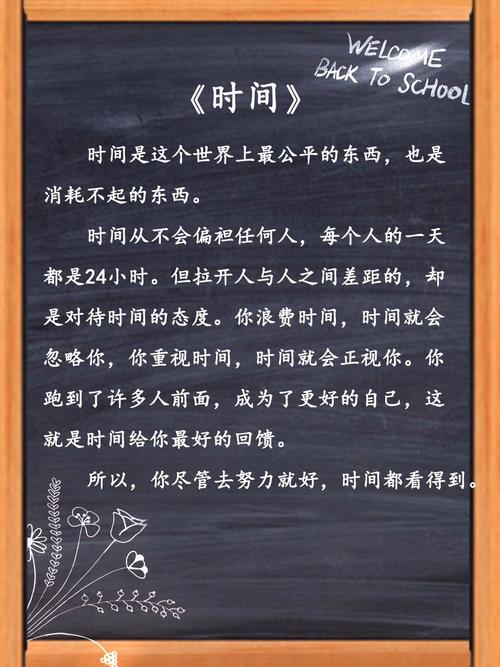 WELCOME
BACK TO SCHOOL
《时间》
时间是这个世界上最公平的东西，也是
消耗不起的东西。
时间从不会偏袒任何人，每个人的一天
都是24小时。但拉开人与人之间差距的，却
是对待时间的态度。你浪费时间，时间就会
忽略你，你重视时间，时间就会正视你。你
跑到了许多人前面，成为了更好的自己，这
就是时间给你最好的回馈。
所以，你尽管去努力就好，时间都看得到。